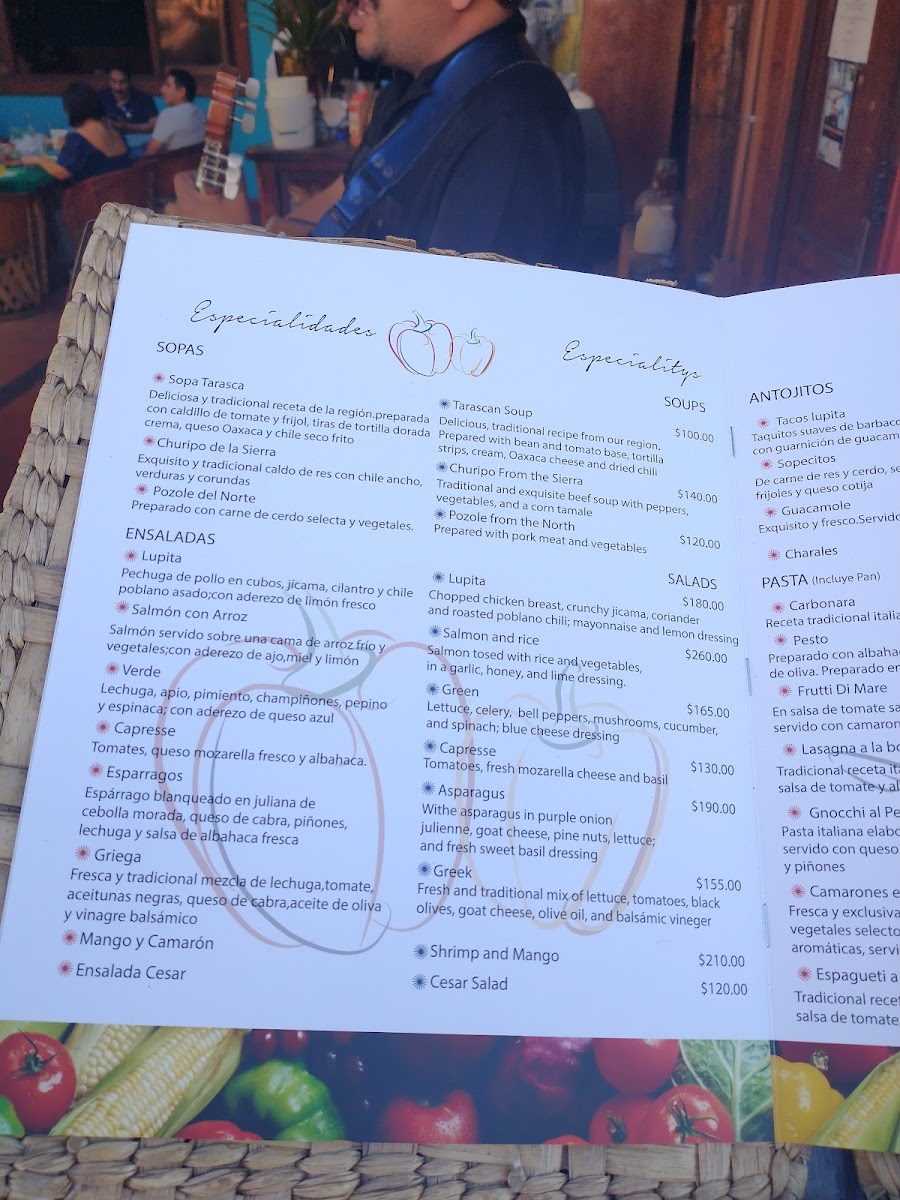 Especialidades
SOPAS
Sopa Tarasca
Deliciosa y tradicional receta de la región.preparada
con caldillo de tomate y frijol, tiras de tortilla dorada
crema, queso Oaxaca y chile seco frito
Churipo de la Sierra
Exquisito y tradicional caldo de res con chile ancho,
verduras y corundas
Pozole del Norte
Preparado con carne de cerdo selecta y vegetales.
ENSALADAS
Lupita
Pechuga de pollo en cubos, jícama, cilantro y chile
poblano asado;con aderezo de limón fresco
Salmón con Arroz
Salmón servido sobre una cama de arroz frío y
vegetales;con aderezo de ajo,miel y limón
Verde
Lechuga, apio, pimiento, champiñones, pepino
y espinaca; con aderezo de queso azul
Capresse
Tomates, queso mozarella fresco y albahaca.
Esparragos
Espárrago blanqueado en juliana de
cebolla morada, queso de cabra, piñones,
lechuga y salsa de albahaca fresca
Griega
Fresca y tradicional mezcla de lechuga,tomate,
aceitunas negras, queso de cabra,aceite de oliva
y vinagre balsámico
Mango y Camarón
Ensalada Cesar
Especialitys
SOUPS
Tarascan Soup $100.00
Delicious, traditional recipe from our region.
Prepared with bean and tomato base, tortilla
strips, cream, Oaxaca cheese and dried chili
Churipo From the Sierra $140.00
Traditional and exquisite beef soup with peppers,
vegetables, and a corn tamale
Pozole from the North $120.00
Prepared with pork meat and vegetables
SALADS
Lupita $180.00
Chopped chicken breast, crunchy jicama, coriander
and roasted poblano chili; mayonnaise and lemon dressing
Salmon and rice $260.00
Salmon tosed with rice and vegetables,
in a garlic, honey, and lime dressing.
Green $165.00
Lettuce, celery, bell peppers, mushrooms, cucumber,
and spinach; blue cheese dressing
Capresse $130.00
Tomatoes, fresh mozarella cheese and basil
Asparagus $190.00
Withe asparagus in purple onion
julienne, goat cheese, pine nuts, lettuce;
and fresh sweet basil dressing
Greek $155.00
Fresh and traditional mix of lettuce, tomatoes, black
olives, goat cheese, olive oil, and balsámic vineger
Shrimp and Mango $210.00
Cesar Salad $120.00
ANTOJITOS
Tacos lupita
Taquitos suaves de barbaco
con guarnición de guacam
Sopecitos
De carne de res y cerdo, se
frijoles y queso cotija
Guacamole
Exquisito y fresco.Servido
Charales
PASTA (Incluye Pan)
Carbonara
Receta tradicional italia
Pesto
Preparado con albaha
de oliva. Preparado en
Frutti Di Mare
En salsa de tomate sa
servido con camaron
Lasagna a la bo
Tradicional receta ita
salsa de tomate y al
Gnocchi al Pe
Pasta italiana elabo
servido con queso
y piñones
Camarones e
Fresca y exclusiva
vegetales selecto
aromáticas, servi
Espagueti a
Tradicional recet
salsa de tomate